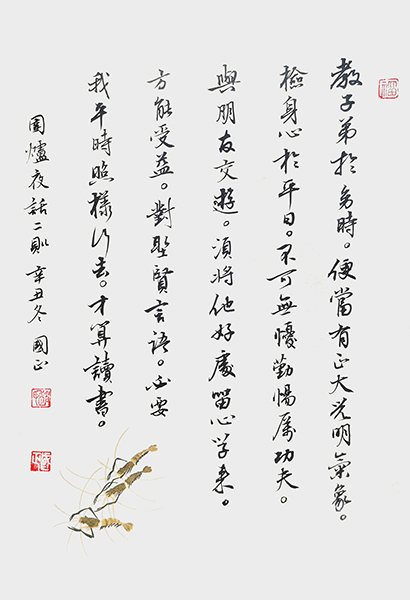 教子弟於幼時。便當有正大光明氣象。
檢身心於平日。不可無懮勤惕厲功夫。
與朋友交遊。須將他好處留心学來。
方能受益。對聖賢言語。必要
我平時照樣行去。才算讀書。
圍爐夜話二則 辛丑冬 國正